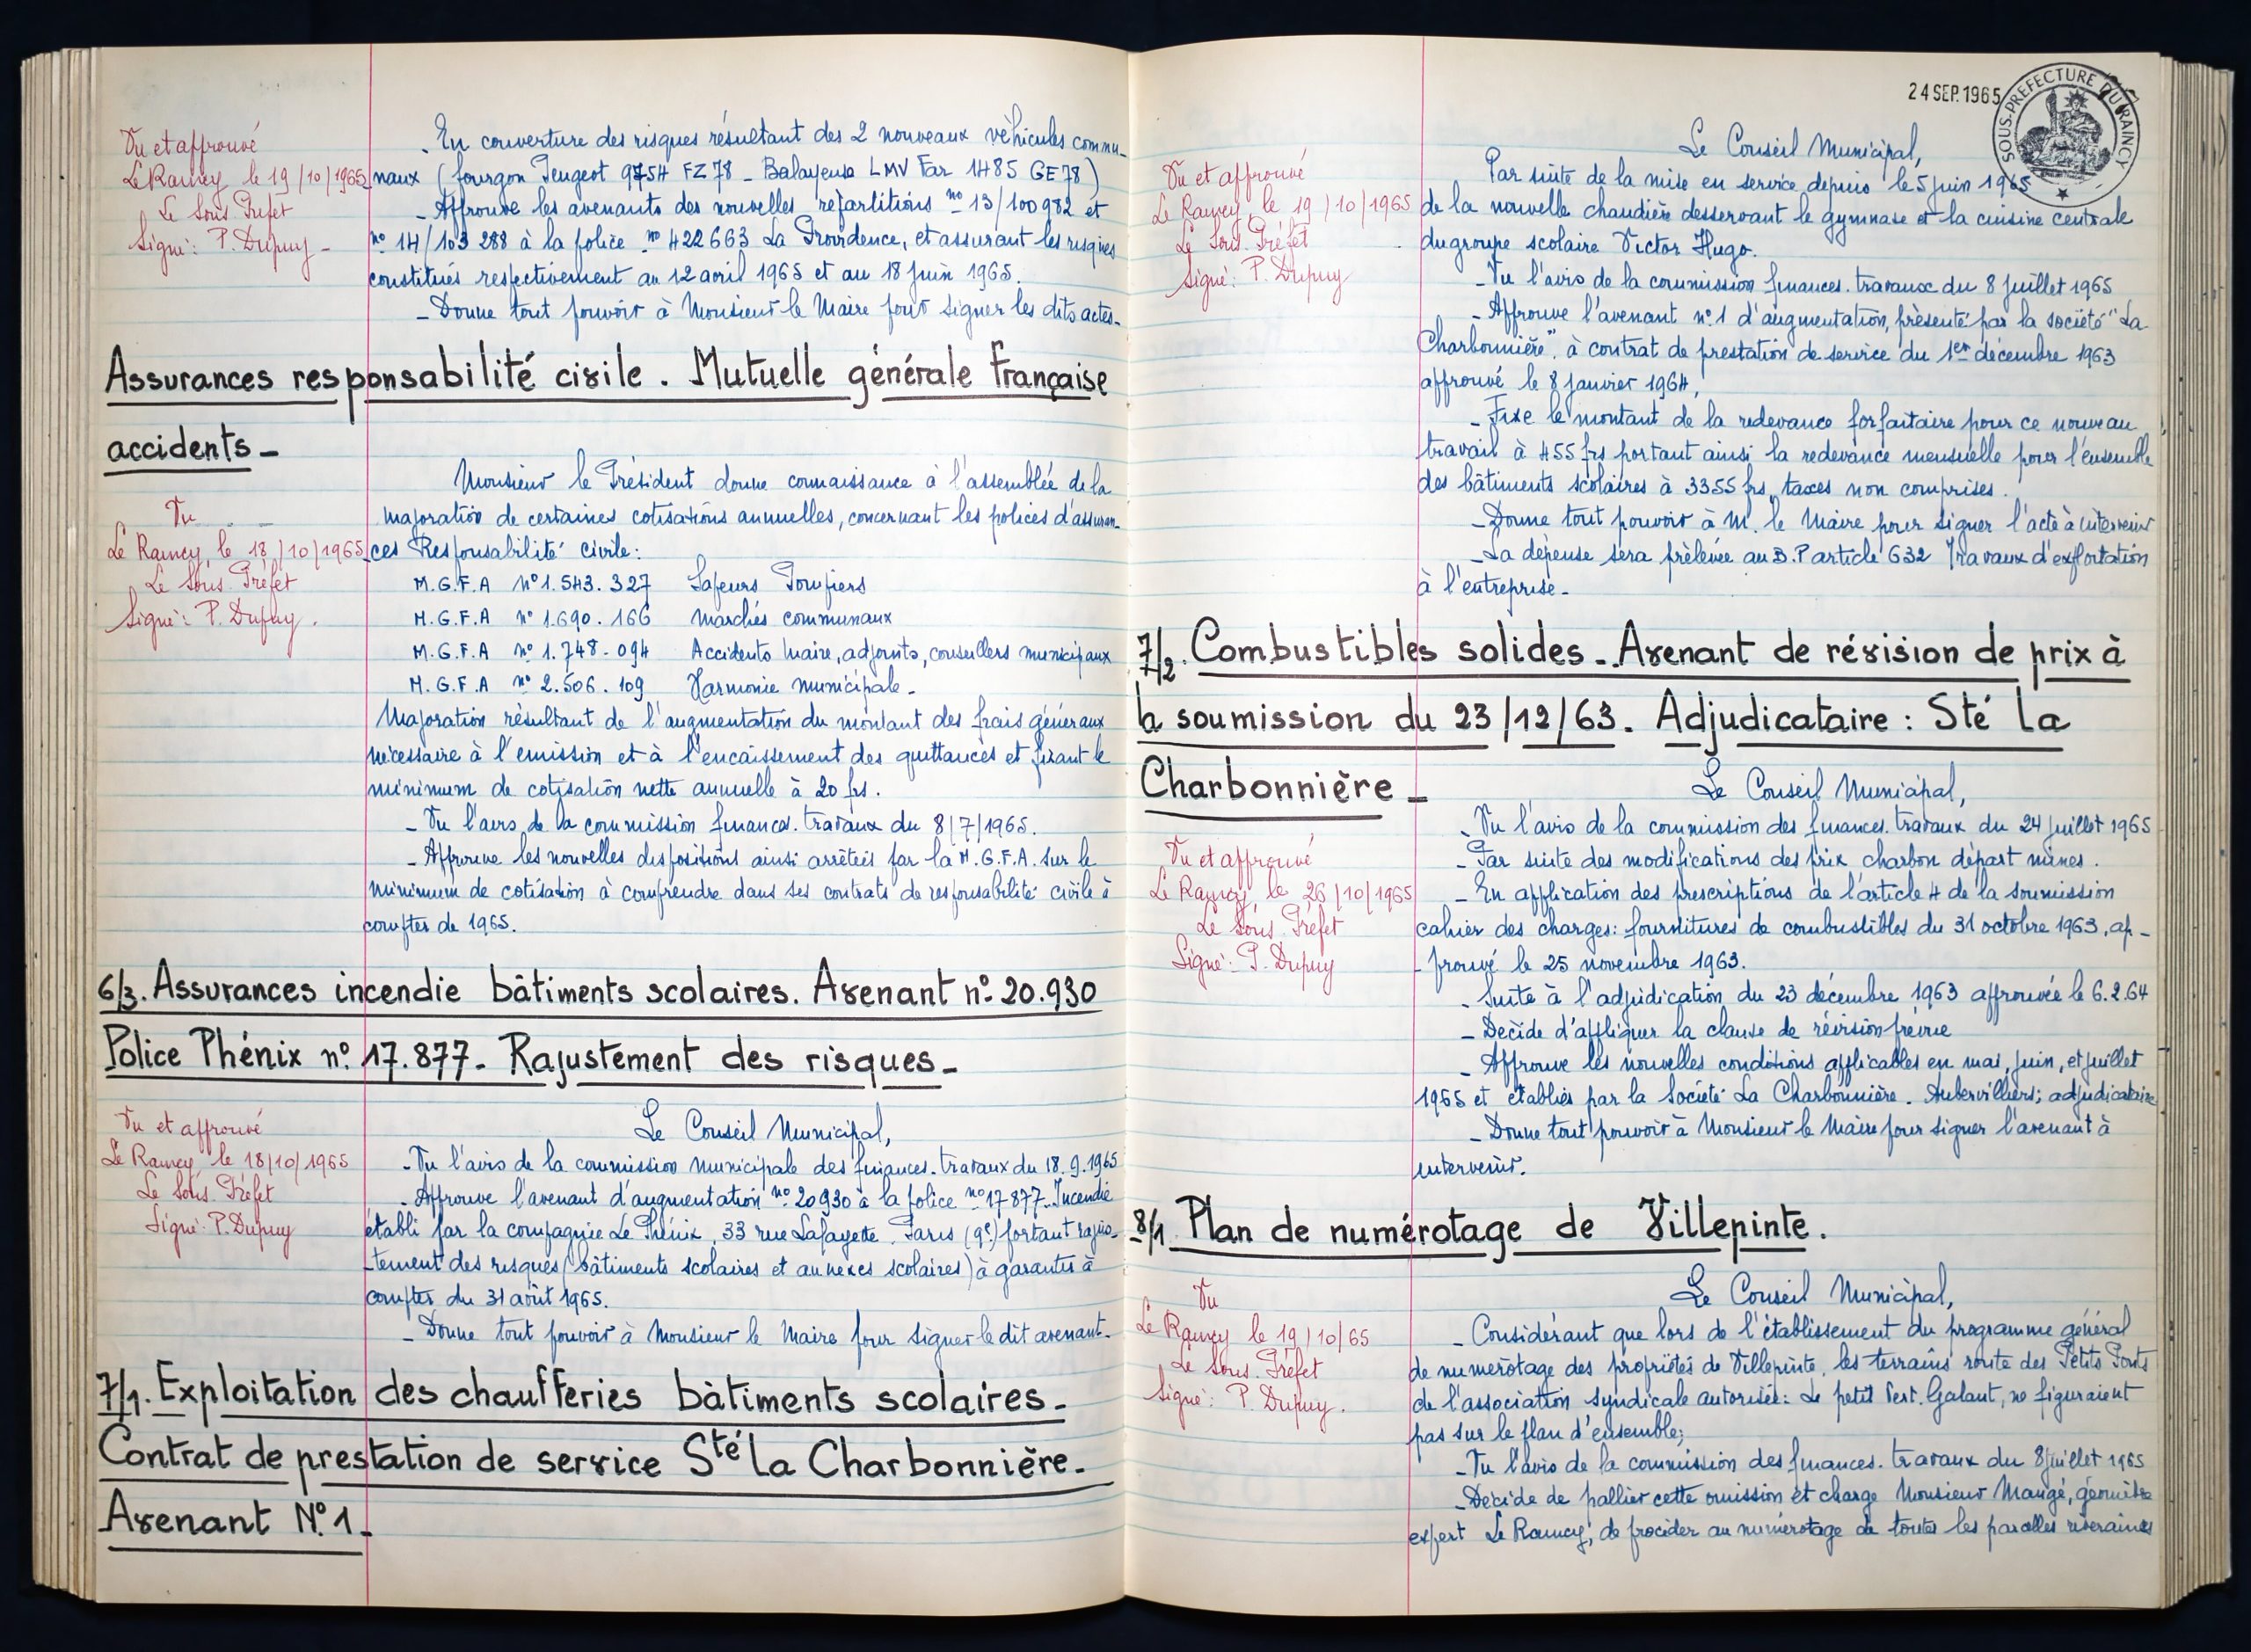 Vu et approuvé
Le Raincy, le 19/10/1965
Le Sous Préfet
Signé: P. Dupuy -
- En couverture des risques résultant des 2 nouveaux véhicules commu-
naux (fourgon Peugeot 9754 FZ 78 - Balayeuse LMV Far 1485 GE 78)
- Approuve les avenants des nouvelles répartitions nº 13/100982 et
nº 14/103 288 à la police nº 422663 La Providence, et assurant les risques
constitués respectivement au 12 avril 1965 et au 18 Juin 1965.
- Donne tout pouvoir à Monsieur le Maire pour signer les dits actes.
Assurances responsabilité civile. Mutuelle générale Française
accidents -
Vu
Le Raincy, le 18/10/1965
Le Sous Préfet
Signé: P. Dupuy.
Monsieur le Président donne connaissance à l'assemblée de la
majoration de certaines cotisations annuelles, concernant les polices d'assuran-
ces Responsabilité civile:
M.G.F.A nº 1.543.327 Sapeurs Pompiers
M.G.F.A nº 1.690.166 Marchés communaux
M.G.F.A nº 1.748-094 Accidents Maire, adjoints, conseillers municipaux
M.G.F.A nº 2.506.109 Harmonie Municipale -
Majoration résultant de l'augmentation du montant des frais généraux
nécessaire à l'emission et à l'encaissement des quittances et fixant le
minimum de cotisation nette annuelle à 20 frs.
- Vu l'avis de la commission finances. travaux du 8/7/1965.
- Approuve les nouvelles dispositions ainsi arrêtées par la M.G.F.A. sur le
minimum de cotisation à comprendre dans ses contrats de responsabilité civile à
compter de 1965.
6/3. Assurances incendie bâtiments scolaires. Avenant nº 20.930
Police Phénix nº 17.877 - Rajustement des risques -
Vu et approuvé
Le Raincy, le 18/10/1965
Le Sous Préfet
Signé: P. Dupuy
Le Conseil Municipal,
- Vu l'avis de la commission municipale des finances. travaux du 18.9.1965
- Approuve l'avenant d'augmentation nº 20930 à la police nº 17877. Incendie
établi par la compagnie Le Phénix, 33 rue Lafayette. Paris (9e) portant rajus-
-tement des risques (bâtiments scolaires et annexes scolaires) à garantir à
compter du 31 août 1965.
- Donne tout pouvoir à Monsieur le Maire pour signer le dit avenant.
7/1. Exploitation des chaufferies bâtiments scolaires -
Contrat de prestation de service Sté La Charbonnière -
Avenant Nº 1 -
24 SEP. 1965
SOUS-PREFECTURE DU RAINCY
Vu et approuvé
Le Raincy, le 19/10/1965
Le Sous. Préfet
Signé: P. Dupuy
Le Conseil Municipal,
Par suite de la mise en service depuis le 5 juin 1965
de la nouvelle chaudière desservant le gymnase et la cuisine centrale
du groupe scolaire Victor Hugo.
- Vu l'avis de la commission finances. travaux du 8 Juillet 1965
- Approuve l'avenant nº 1 d'augmentation, présenté par la société "La
Charbonnière", à contrat de prestation de service du 1er décembre 1963
approuvé le 8 Janvier 1964,
- Fixe le montant de la redevance forfaitaire pour ce nouveau
travail à 455 frs portant ainsi la redevance mensuelle pour l'ensemble
des bâtiments scolaires à 3355 frs, taxes non comprises.
- Donne tout pouvoir à M. le Maire pour signer l'acte à intervenir
- La dépense sera prélevée au B.P article 632 Travaux d'exploitation
à l'entreprise -
7/2. Combustibles solides - Avenant de révision de prix à
la soumission du 23/12/63. Adjudicataire: Sté La
Charbonnière -
Vu et approuvé
Le Raincy, le 26/10/1965
Le Sous. Préfet
Signé: P. Dupuy
Le Conseil Municipal,
- Vu l'avis de la commission des finances. travaux du 24 Juillet 1965
- Par suite des modifications des prix charbon départ mines.
- En application des prescriptions de l'article 4 de la soumission
cahier des charges: fournitures de combustibles du 31 octobre 1963, ap-
- prouvé le 25 novembre 1963.
- Suite à l'adjudication du 23 décembre 1963 approuvée le 6.2.64
- Décide d'appliquer la clause de révision prévue
- Approuve les nouvelles conditions applicables en mai, juin, et juillet
1965 et établies par la Société La Charbonnière. Aubervilliers; adjudicataire
- Donne tout pouvoir à Monsieur le Maire pour signer l'avenant à
intervenir.
8/1. Plan de numérotage de Villepinte.
Vu
Le Raincy le 19/10/65
Le Sous. Préfet
Signé: P. Dupuy.
Le Conseil Municipal,
- Considérant que lors de l'établissement du programme général
de numérotage des propriétés de Villepinte, les terrains route des Petits Ponts
de l'association syndicale autorisée: Le petit Vert. Galant, ne figuraient
pas sur le plan d'ensemble;
- Vu l'avis de la commission des finances. travaux du 8 juillet 1965
- Décide de pallier cette omission et charge Monsieur Maugé, géomètre
expert Le Raincy, de procéder au numérotage de toutes les parcelles riveraines